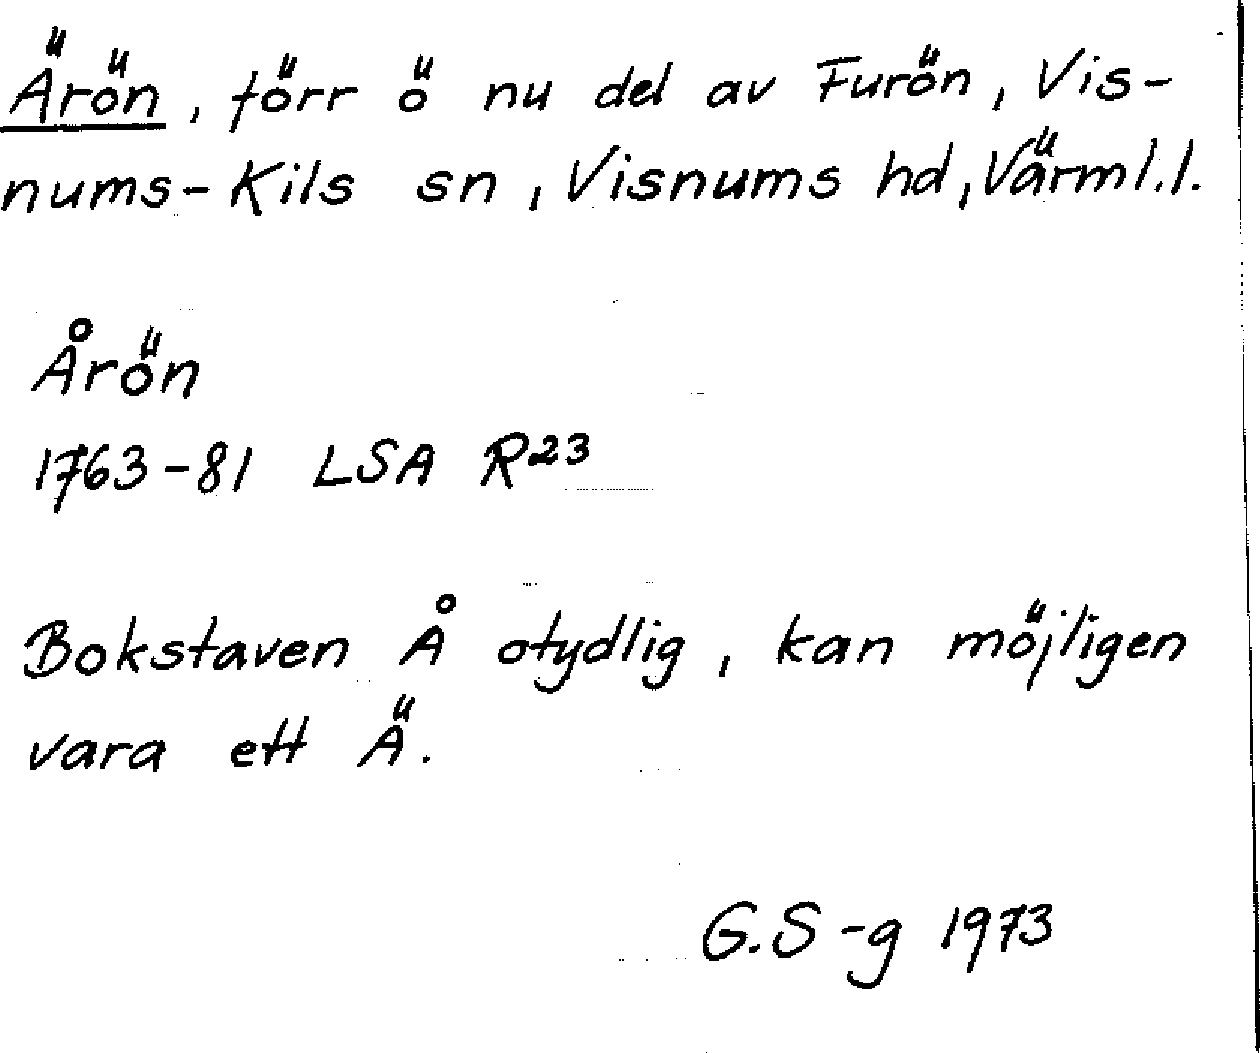 Ärön, förr ö nu del av Furön, Vis-
nums-Kils sn, Visnums hd, Värml.l.
Årön
1763-81 LSA R²³
Bokstaven Å otydlig, kan möjligen
vara ett Ä.
G.S-g 1973